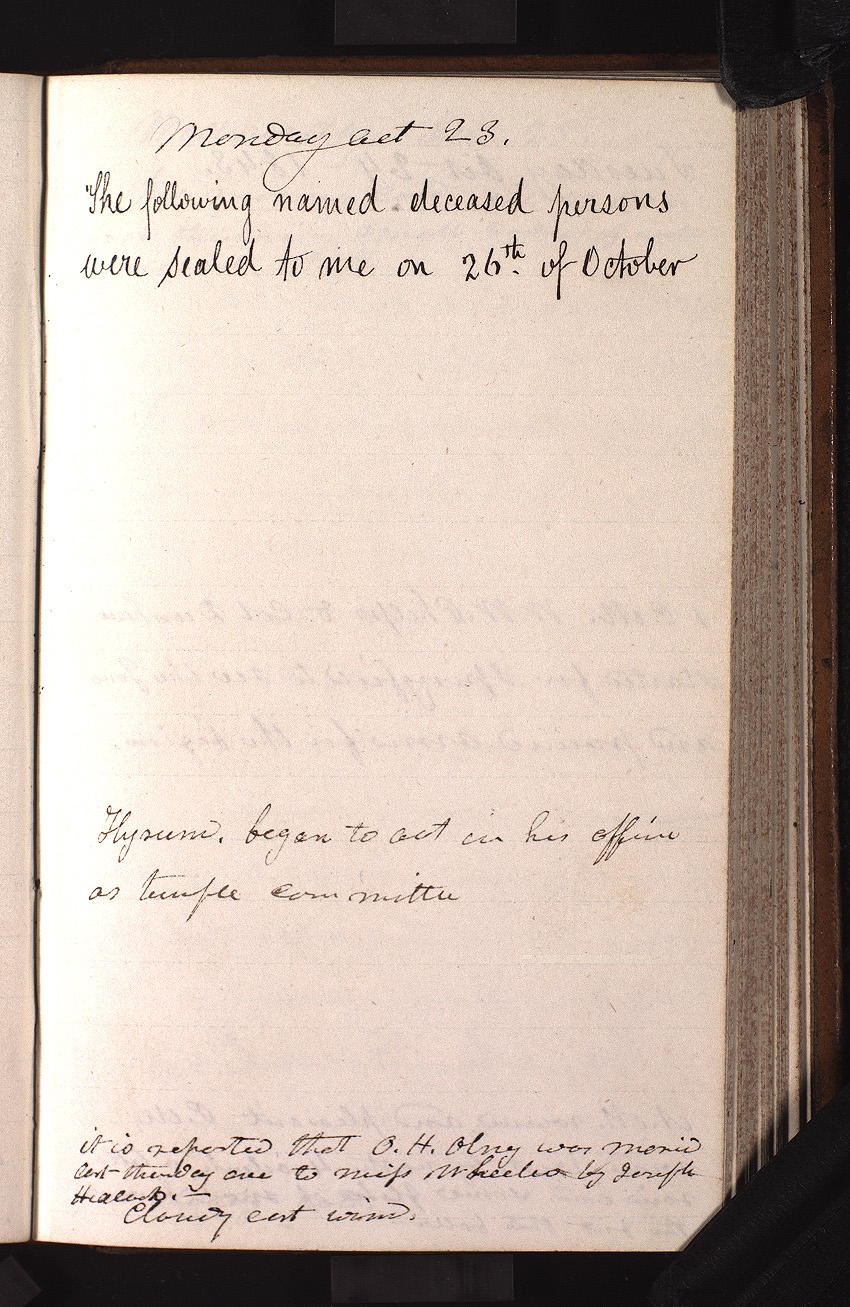 Monday Oct 23.
The following named deceased persons
were sealed to me on 26th. of October
Hyrum. began to act in his office
as temple committee
it is reported that O. H. Olney was maried
last thursday eve to miss Wheeler by Joseph
Headlock.—
Cloudy east wind.